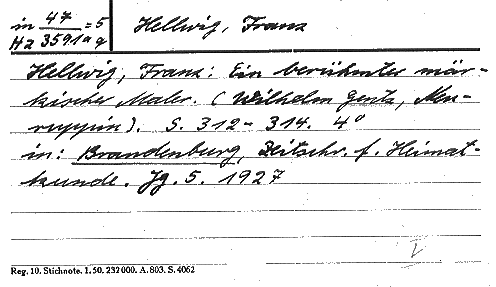 in 47/Hz 3591a = 5 a Hellwig, Franz
Hellwig, Franz: Ein berühmter mär-
kischer Maler. (Wilhelm Gentz, Neu-
ruppin). S. 312-314. 4°
in: Brandenburg, Zeitschr. f. Heimat-
kunde. Jg. 5. 1927
Reg. 10. Stichnote. 1. 50. 232000. A. 803. S. 4062